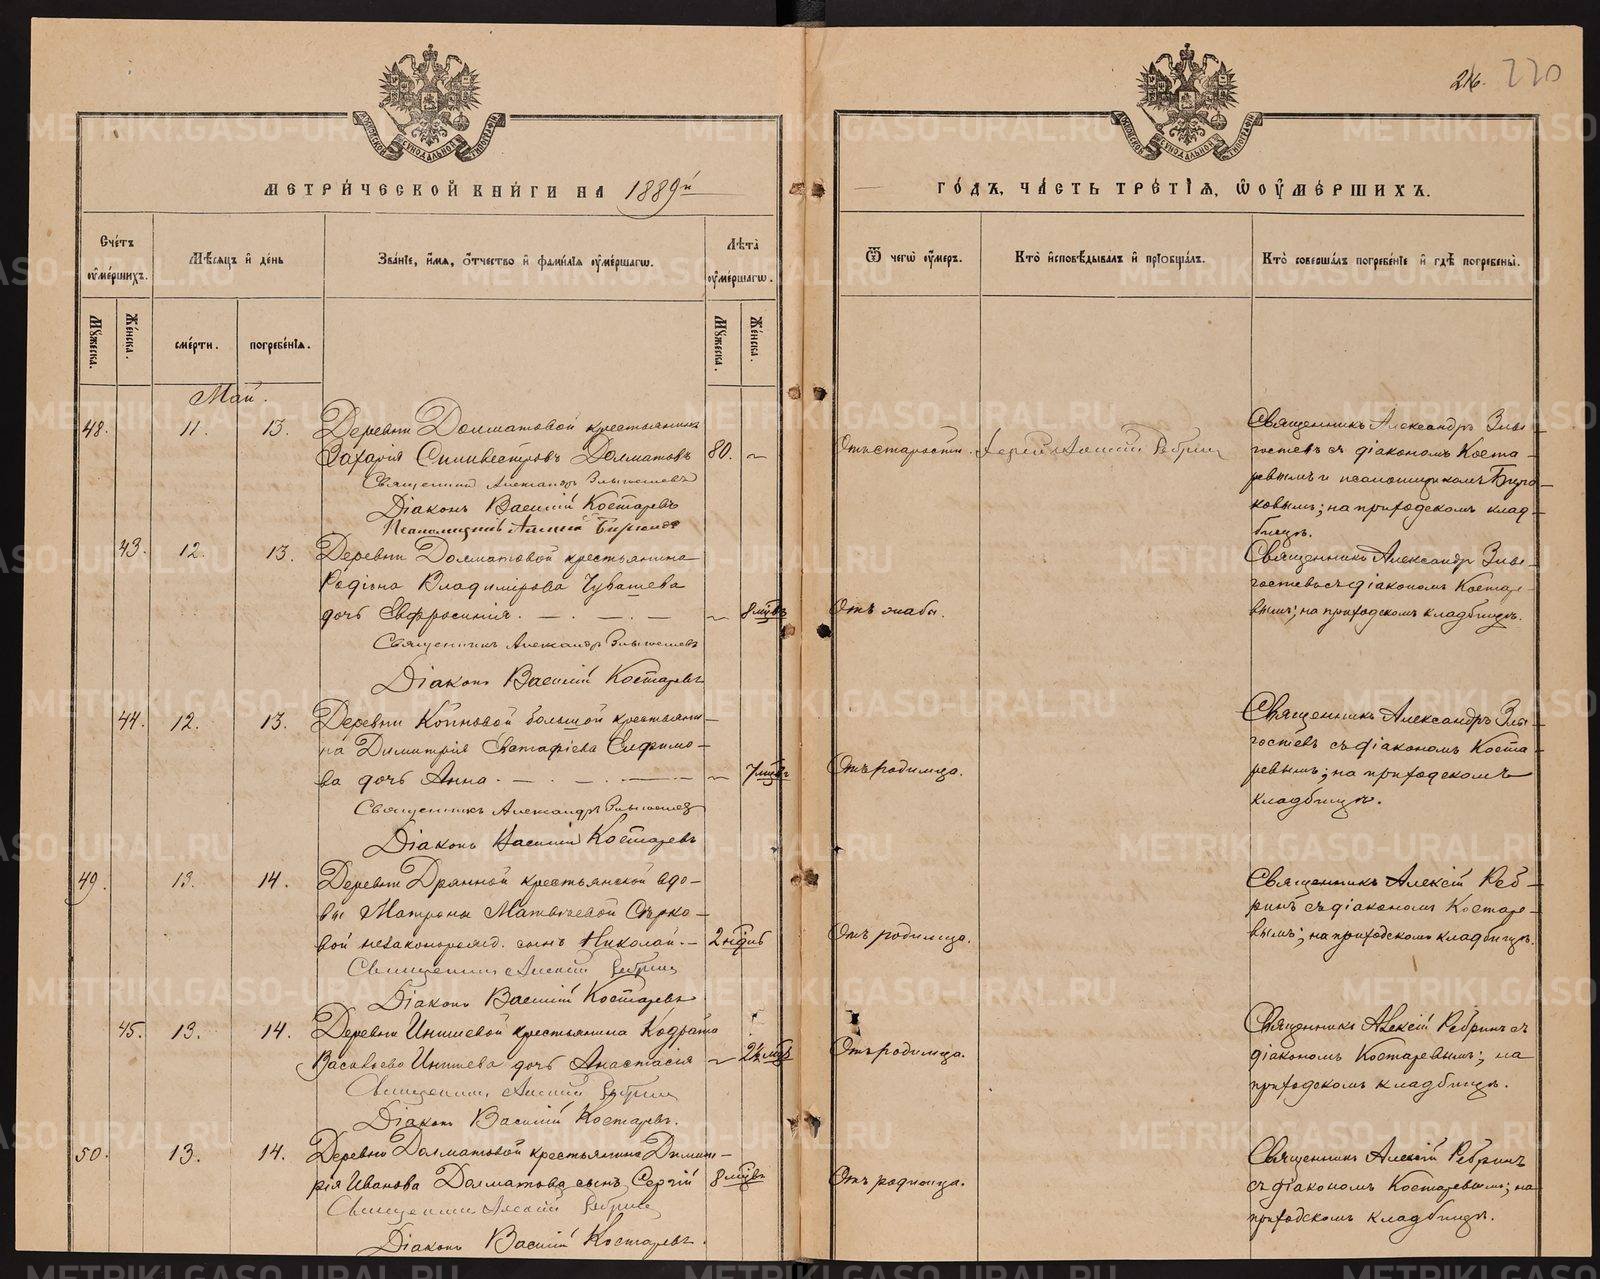 216. 220
МЕТРИЧЕСКОЙ КНИГИ НА 1889й
ГОДЪ, ЧАСТЬ ТРЕТІЯ, Ѡ ОУМЕРШИХЪ.
Счетъ оумершихъ.
Мѣсяцъ и день
Званіе, имя, отчество и фамилія оумершагѡ.
Лѣта оумершагѡ.
Ѿ чегѡ оумеръ.
Кто исповѣдывалъ и пріобщалъ.
Кто совершалъ погребеніе и гдѣ погребены.
Мужеска. Женска. смерти. погребенія. Мужеска. Женска.
Май.
48. 11. 13.
Деревни Долматовой крестьянинъ
Захарія Силивестровъ Долматовъ 80. —
Священникъ Александръ Злыгостевъ
Діаконъ Василій Костаревъ
Псаломщикъ Бирюковъ
Отъ старости. Іерей Алексій Ребринъ
Священникъ Александръ Злы-
гостевъ съ діакономъ Коста-
ревымъ и псаломщикомъ Бирю-
ковымъ; на приходскомъ клад-
бищѣ.
43. 12. 13.
Деревни Долматовой крестьянина
Родіона Владимірова Чувашева
дочь Евфросинія. — 8 мцвъ
Священникъ Александръ Злыгостевъ
Діаконъ Василій Костаревъ
Отъ жабы.
Священникъ Александръ Злы-
гостевъ съ діакономъ Костаре-
вымъ; на приходскомъ кладбищѣ.
44. 12. 13.
Деревни большой крестьяни-
на Димитрія Евстафіева Ефимо-
ва дочь Анна. — 7 мцвъ
Священникъ Александръ Злыгостевъ
Діаконъ Василій Костаревъ
Отъ родимца.
Священникъ Александръ Злы-
гостевъ съ діакономъ Коста-
ревымъ; на приходскомъ
кладбищѣ.
49. 13. 14.
Деревни Дрянной крестьянской вдо-
вы Матроны Матвѣевой Сѣрко-
вой незаконорожд. сынъ Николай. — 2 ндѣль
Священникъ Алексій Ребринъ
Діаконъ Василій Костаревъ
Отъ родимца.
Священникъ Алексій Реб-
ринъ съ діакономъ Костаре-
вымъ; на приходскомъ кладбищѣ.
45. 13. 14.
Деревни Инишевой крестьянина Кодрата
Васильева Инишева дочь Анастасія — 2½ мцъ
Священникъ Алексій Ребринъ
Діаконъ Василій Костаревъ.
Отъ родимца.
Священникъ Алексій Ребринъ съ
діакономъ Костаревымъ; на
приходскомъ кладбищѣ.
50. 13. 14.
Деревни Долматовой крестьянина Димит-
рія Иванова Долматова сынъ Сергій 8 мцвъ
Священникъ Алексій Ребринъ
Діаконъ Василій Костаревъ.
Отъ родимца.
Священникъ Алексій Ребринъ
съ діакономъ Костаревымъ; на
приходскомъ кладбищѣ.
METRIKI.GASO-URAL.RU